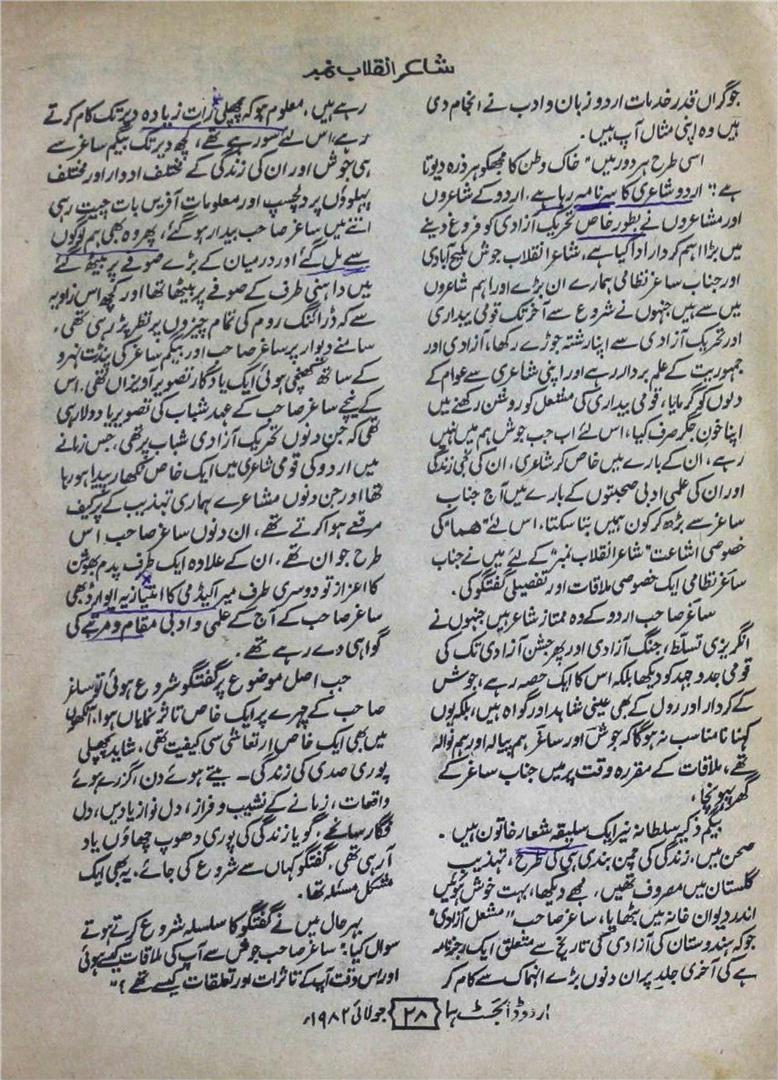 شاعر انقلاب نمبر
جو گراں قدر خدمات اردو زبان و ادب نے انجام دی
ہیں وہ اپنی مثال آپ ہیں .
اسی طرح ہر دور میں " خاک وطن کا مجھکو ہر ذرہ دیوتا
ہے " اردو شاعری کا سرنامہ رہا ہے . اردو کے شاعروں
اور مشاعروں نے بطور خاص تحریک آزادی کو فروغ دینے
میں بڑا اہم کردار ادا کیا ہے، شاعر انقلاب جوش ملیح آبادی
اور جناب ساغر نظامی ہمارے ان بڑے اور اہم شاعروں
میں سے ہیں جنہوں نے شروع سے آخر تک قومی بیداری
اور تحریک آزادی سے اپنا رشتہ جوڑے رکھا، آزادی اور
جمہوریت کے علم بردار رہے اور اپنی شاعری سے عوام کے
دلوں کو گرمایا، قومی بیداری کی مشعل کو روشن رکھنے میں
اپنا خون جگر صرف کیا، اس لئے اب جب جوش ہم میں نہیں
رہے، ان کے بارے میں خاص کر شاعری، ان کی نجی زندگی
اور ان کی علمی ادبی صحبتوں کے بارے میں آج جناب
ساغر سے بڑھ کر کون ہمیں بتا سکتا، اس لئے "ھما" کی
خصوصی اشاعت "شاعر انقلاب نمبر" کے لئے میں نے جناب
ساغر نظامی ایک خصوصی ملاقات اور تفصیلی گفتگو کی .
ساغر صاحب اردو کے وہ ممتاز شاعر ہیں جنہوں نے
انگریزی تسلط، جنگ آزادی اور پھر جشن آزادی تک کی
قومی جدوجہد کو دیکھا بلکہ اس کا ایک حصہ رہے، جوش
کے کردار اور رول کے بھی عینی شاہد اور گواہ ہیں، بلکہ یوں
کہنا نامناسب نہ ہوگا کہ جوش اور ساغر ہم پیالہ اور ہم نوالہ
تھے، ملاقات کے مقررہ وقت پر میں جناب ساغر کے
گھر پہونچا،
بیگم ذکیہ سلطانہ نیر ایک سلیقہ شعار خاتون ہیں .
صحن میں، زندگی کی چمن بندی ہی کی طرح، تہذیب
گلستاں میں مصروف تھیں . مجھے دیکھا، بہت خوش ہوئیں
اندر دیوان خانہ میں بٹھایا، ساغر صاحب "مشعل آزادی"
جو کہ ہندوستان کی آزادی کی تاریخ سے متعلق ایک رجز نامہ
ہے کی آخری جلد پر ان دنوں بڑے انہماک سے کام کر
رہے ہیں . معلوم ہو کہ پچھلی رات زیادہ دیر تک کام کرتے
رہے اس لئے سو رہے تھے، کچھ دیر تک بیگم ساغر سے
ہی جوش اور ان کی زندگی کے مختلف ادوار اور مختلف
پہلوؤں پر دلچسپ اور معلومات آفریں بات چیت رہی
اتنے میں ساغر صاحب بیدار ہو گئے، پھر وہ بھی ہم لوگوں
سے مل گئے اور درمیان کے بڑے صوفے پر بیٹھ گئے
میں داہنی طرف کے صوفے پر بیٹھا تھا اور کچھ اس زاویہ
سے کہ ڈرائنگ روم کی تمام چیزوں پر نظر پڑ رہی تھی .
سامنے دیوار پر ساغر صاحب اور بیگم ساغر کی پنڈت نہرو
کے ساتھ کھنچی ہوئی ایک یادگار تصویر آویزاں تھی . اس
کے نیچے ساغر صاحب کے عہد شباب کی تصویر یاد دلا رہی
تھی کہ جن دنوں تحریک آزادی شباب پر تھی . جس زمانے
میں اردو کی قومی شاعری میں ایک خاص نکھار پیدا ہو رہا
تھا اور جن دنوں مشاعرے ہماری تہذیب کے پرکیف
مرقعے ہوا کرتے تھے، ان دنوں ساغر صاحب اس
طرح جوان تھے . ان کے علاوہ ایک طرف پدم بھوشن
کا اعزاز تو دوسری طرف میر اکیڈمی کا امتیازیہ ایوارڈ بھی
ساغر صاحب کے آج کے علمی و ادبی مقام و مرتبے کی
گواہی دے رہے تھے .
جب اصل موضوع پر گفتگو شروع ہوئی تو ساغر
صاحب کے چہرے پر ایک خاص تاثر نمایاں ہوا، آنکھوں
میں بھی ایک خاص ارتعاشی سی کیفیت تھی، شاید پچھلی
پوری صدی کی زندگی ـ بیتے ہوئے دن، گزرے ہوئے
واقعات، زمانے کے نشیب و فراز، دل نواز یادیں، دل
فگار سانحے، گویا زندگی کی پوری دھوپ چھاؤں یاد
آ رہی تھی . گفتگو کہاں سے شروع کی جائے، یہ بھی ایک
مشکل مسئلہ تھا .
بہر حال میں نے گفتگو کا سلسلہ شروع کرتے ہوئے
سوال کیا: "ساغر صاحب جوش سے آپ کی ملاقات کیسے ہوئی
اور اس وقت آپ کے تاثرات اور تعلقات کیسے تھے ؟"
اردو ڈائجسٹ ہما {۲۸} جولائی ۱۹۸۲ء